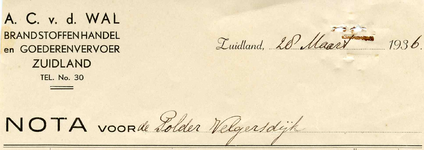 A. C. v. d. WAL
BRANDSTOFFENHANDEL
en GOEDERENVERVOER
ZUIDLAND
TEL. No. 30
Zuidland, 28 Maart 1936.
NOTA VOOR de Polder Velgersdijk